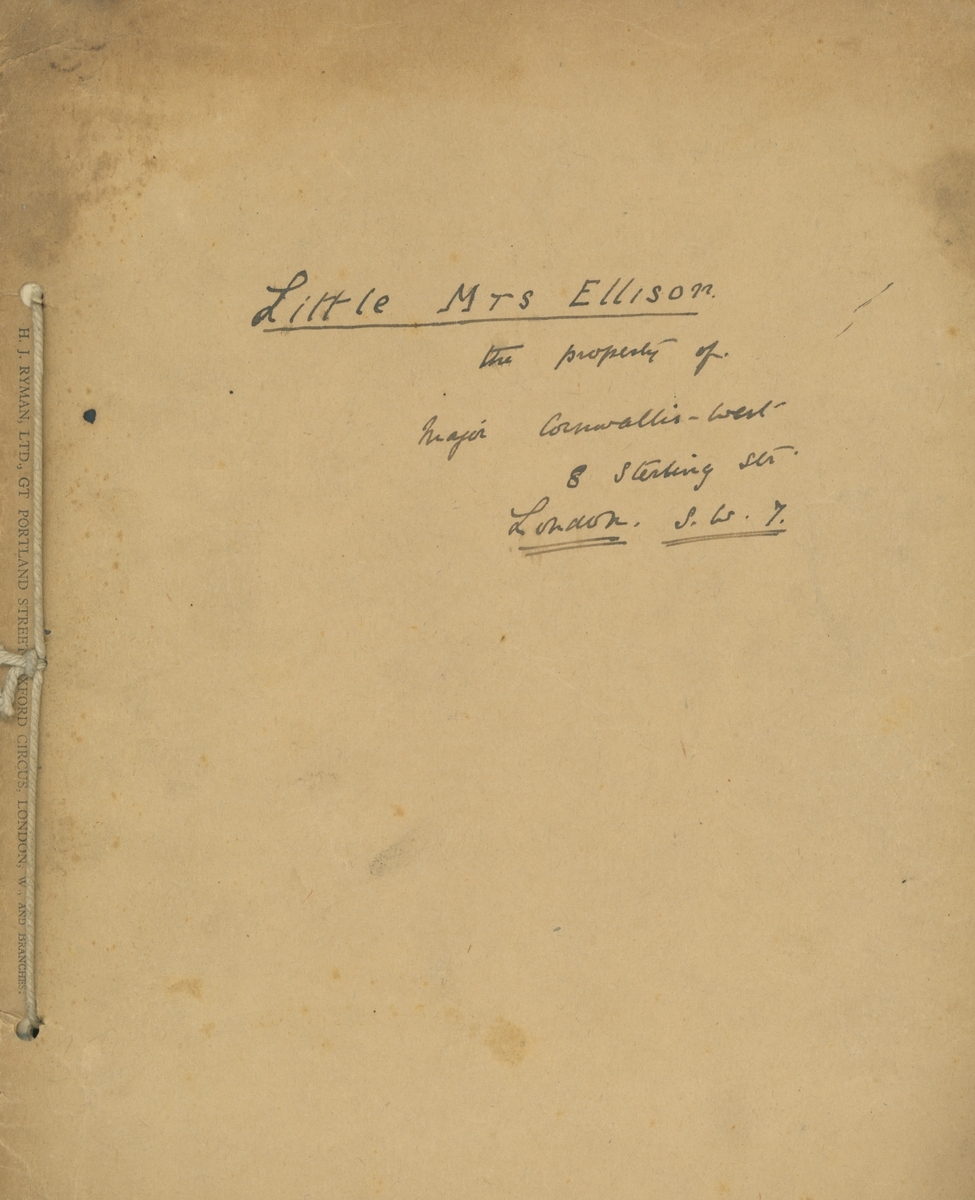 Little Mrs Ellison.
the property of.
Major Cornwallis-West
8 Sterling Str.
London. S.W.7.
H. J. RYMAN, LTD., GT PORTLAND STREET OXFORD CIRCUS, LONDON, W. AND BRANCHES.